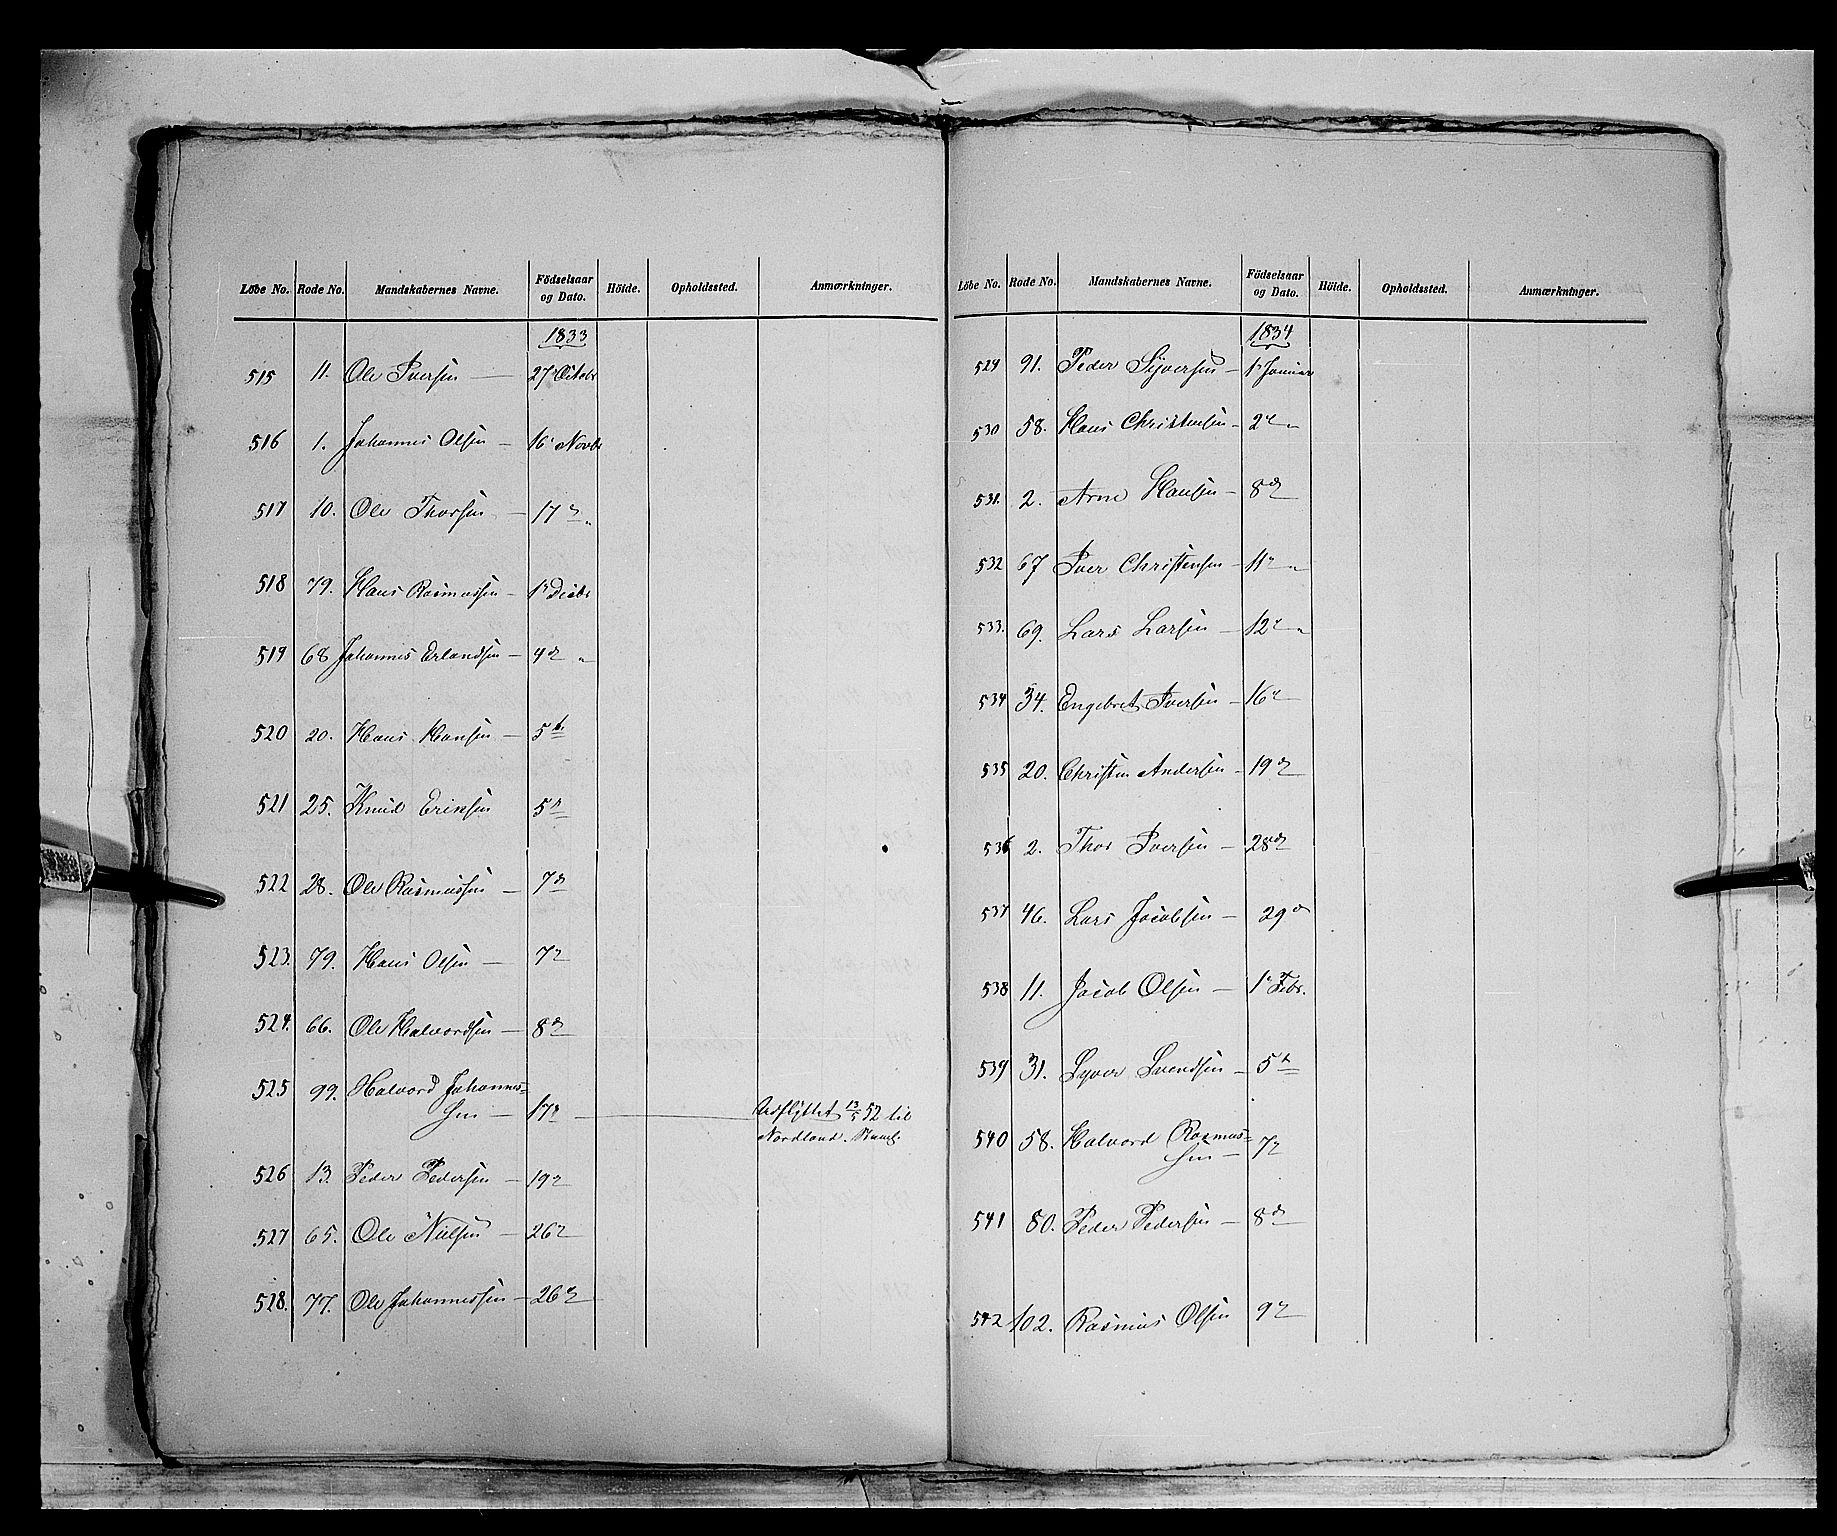 Löbe No. Rode No. Mandskabernes Navne. Födselsaar og Dato. Höide. Opholdssted. Anmærkninger.
1833
515 11. Ole Iversen — 27' Octobr
516 1. Johannes Olsen — 16' Novbr
517 10. Ole Thorsen — 17 d "
518 79. Hans Rasmussen — 1' Decbr
519 68 Johannes Erlandsen — 4 d "
520 20. Hans Hansen — 5 te
521 25. Knud Eriksen 5 d
522 28. Ole Rasmussen — 7 d
523. 79. Hans Olsen — 7 d
524. 66. Ole Halvordsen — 8 d
525 99. Halvord Johannes=
sen — 17 d — Udflyttet 13/5 52 til
Nordland.
526 13. Peder Pedersen — 19 d
527 65. Ole Nielsen — 26 d
528. 77. Ole Johannessen — 26 d
Löbe No. Rode No. Mandskabernes Navne. Födselsaar og Dato. Höide. Opholdssted. Anmærkninger.
1834
529 91. Peder Syversen — 1' Januar
530 58. Hans Christensen — 2 d "
531. 2. Arne Hansen — 8 d
532 67 Iver Christensen — 11 d "
533. 69. Lars Larsen — 12 d "
534 34. Engebret Iversen — 16 d
535 20. Christen Andersen — 19 d
536 2. Thor Iversen — 28 d
537 46. Lars Jacobsen — 29 d
538 11. Jacob Olsen — 1' Febr.
539 31. Syver Svendsen — 5 te
540 58. Halvord Rasmus=
sen — 7 d
541 80. Peder Pedersen — 8 d
542 102. Rasmus Olsen 9 d